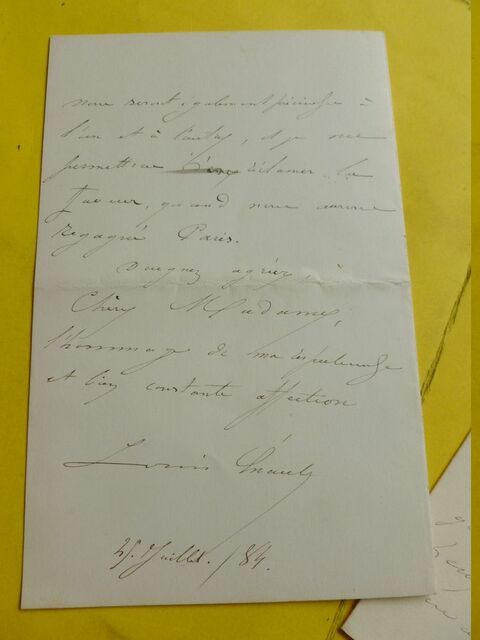 nous serait également précieuse à
l'un et à l'autre, et je me
permettrai réclamer la
faveur, quand nous aurons
regagné Paris.
Daignez agréer,
Chère Madame,
l'hommage de ma respectueuse
et bien constante affection
Louis Énault
25 Juillet. /84.